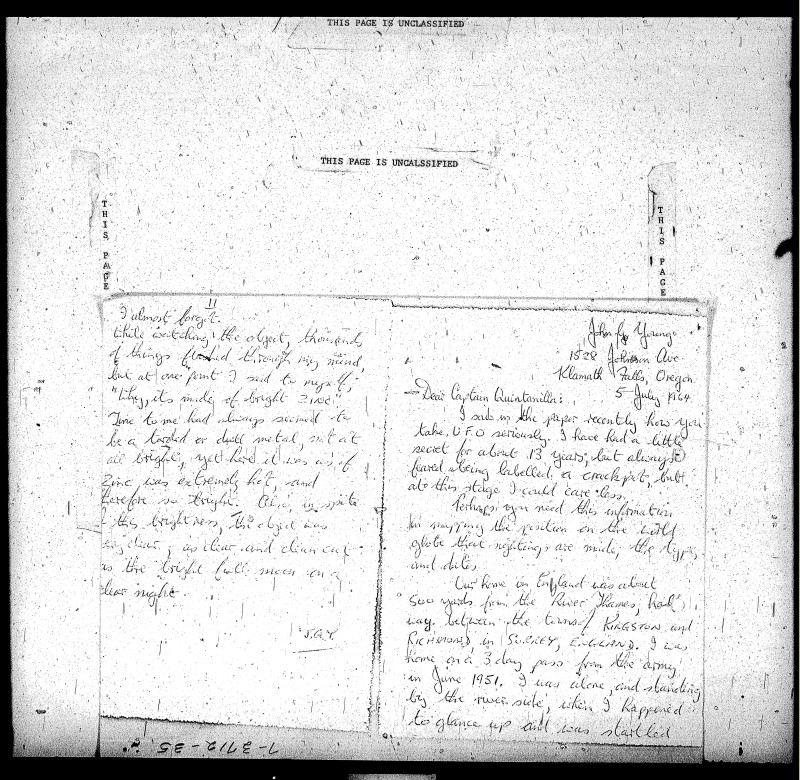 THIS PAGE IS UNCLASSIFIED
THIS PAGE IS UNCALSSIFIED
THIS PAGE
THIS PAGE
11
I almost forgot.
While watching the object, thousands
of things flashed through my mind,
but at one point I said to myself,
"Why, its made of bright zinc"
Zinc to me had always seemed to
be a or dull metal, not at
all bright, yet here it was as if
zinc was extremely hot, and
therefore so bright. Also, in spite
this brightness, the object was
clear, as clear and clean cut
as the bright full moon on a
clear night.
J.G.Y.
John G. Young
1528 Johnson Ave
Klamath Falls, Oregon
5 July 1964
Dear Captain Quintanilla:
I saw in the paper recently how you
take U.F.O seriously. I have had a little
secret for about 13 years, but always
feared being labelled a crackpot, but
at this stage I could care less.
Perhaps you need this information
for mapping the position on the world
globe that sightings are made, the types
and dates.
Our home in England was about
500 yards from the River Thames, half
way between the towns of KINGSTON and
RICHMOND in SURREY, ENGLAND. I was
home on a 3 day pass from the army
in June 1951. I was alone, and standing
by the river side, when I happened
to glance up and was startled
7-3712-35